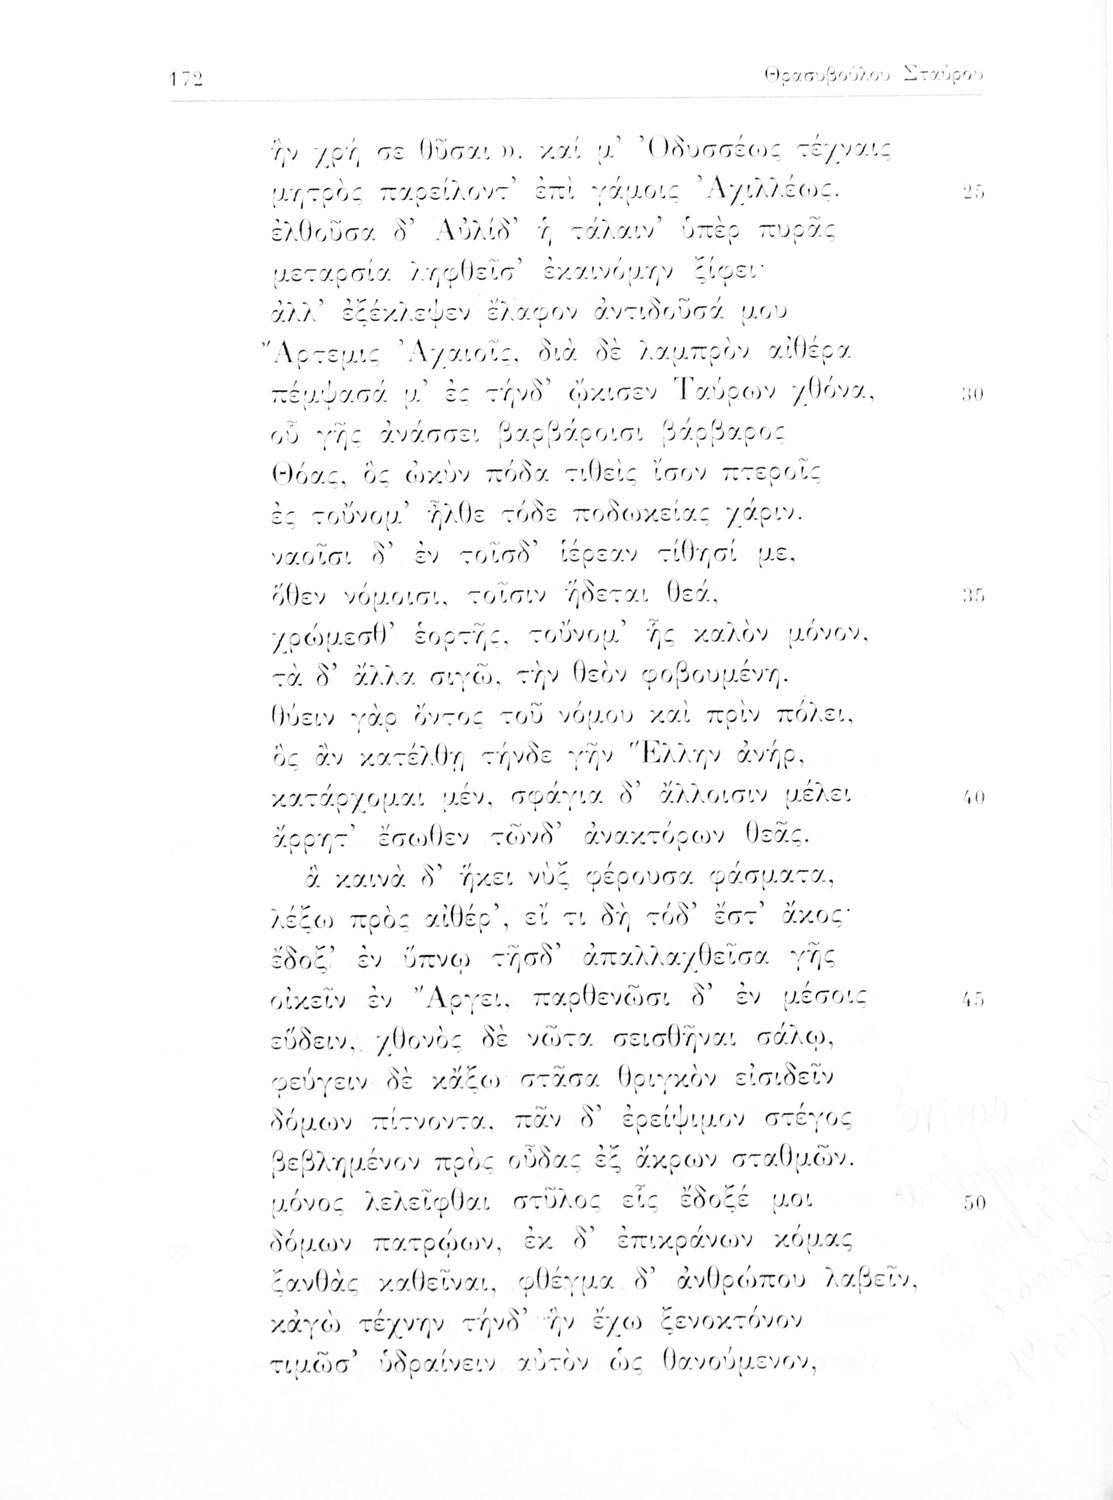 172 Θρασυβούλου Σταύρου
ἣν χρή σε θῦσαι». καί μ' Ὀδυσσέως τέχναις
μητρὸς παρείλοντ' ἐπὶ γάμοις Ἀχιλλέως. 25
ἐλθοῦσα δ' Αὐλίδ' ἡ τάλαιν' ὑπὲρ πυρᾶς
μεταρσία ληφθεῖσ' ἐκαινόμην ξίφει·
ἀλλ' ἐξέκλεψεν ἔλαφον ἀντιδοῦσά μου
Ἄρτεμις Ἀχαιοῖς, διὰ δὲ λαμπρὸν αἰθέρα
πέμψασά μ' ἐς τήνδ' ᾤκισεν Ταύρων χθόνα, 30
οὗ γῆς ἀνάσσει βαρβάροισι βάρβαρος
Θόας, ὃς ὠκὺν πόδα τιθεὶς ἴσον πτεροῖς
ἐς τοὔνομ' ἦλθε τόδε ποδωκείας χάριν.
ναοῖσι δ' ἐν τοῖσδ' ἱέρεαν τίθησί με,
ὅθεν νόμοισι, τοῖσιν ἥδεται θεά, 35
χρώμεσθ' ἑορτῆς, τοὔνομ' ἧς καλὸν μόνον,
τὰ δ' ἄλλα σιγῶ, τὴν θεὸν φοβουμένη.
θύειν γὰρ ὄντος τοῦ νόμου καὶ πρὶν πόλει,
ὃς ἂν κατέλθῃ τήνδε γῆν Ἕλλην ἀνήρ,
κατάρχομαι μέν, σφάγια δ' ἄλλοισιν μέλει 40
ἄρρητ' ἔσωθεν τῶνδ' ἀνακτόρων θεᾶς.
ἃ καινὰ δ' ἥκει νὺξ φέρουσα φάσματα,
λέξω πρὸς αἰθέρ', εἴ τι δὴ τόδ' ἔστ' ἄκος·
ἔδοξ' ἐν ὕπνῳ τῆσδ' ἀπαλλαχθεῖσα γῆς
οἰκεῖν ἐν Ἄργει, παρθενῶσι δ' ἐν μέσοις 45
εὕδειν, χθονὸς δὲ νῶτα σεισθῆναι σάλῳ,
φεύγειν δὲ κἄξω στᾶσα θριγκὸν εἰσιδεῖν
δόμων πίτνοντα, πᾶν δ' ἐρείψιμον στέγος
βεβλημένον πρὸς οὖδας ἐξ ἄκρων σταθμῶν.
μόνος λελεῖφθαι στῦλος εἷς ἔδοξέ μοι 50
δόμων πατρῴων, ἐκ δ' ἐπικράνων κόμας
ξανθὰς καθεῖναι, φθέγμα δ' ἀνθρώπου λαβεῖν,
κἀγὼ τέχνην τήνδ' ἣν ἔχω ξενοκτόνον
τιμῶσ' ὑδραίνειν αὐτὸν ὡς θανούμενον,